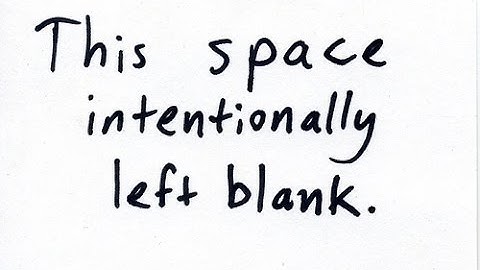 This space
intentionally
left blank.